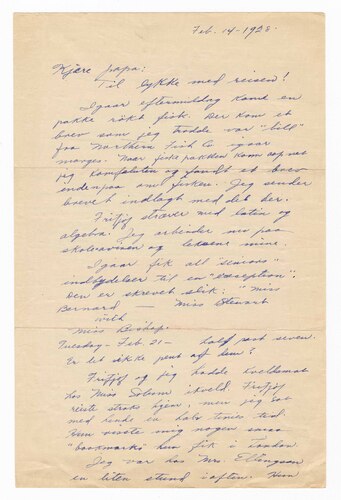 Feb. 14-1928.
Kjære papa:
Til lykke med reisen!
Igaar eftermiddag kand en
pakke røkt fisk. Der kom et
brev som jeg trodde var "bill"
fra Northern Fish Co igaar
morges. Naar fiske pakken kom
jeg og fandt et brev
endenpaa om fisken. Jeg sender
brevet indlagt med det her.
Fritjof stræver med latin og
algebra. Jeg arbeider nu paa
skoleavisen og leksene mine.
Igaar fik all "seniors"
indbydelser til en "reception".
Den er skrevet slik: "Miss
Bernard Miss Stewart
with
Miss Bishop.
Tuesday - Feb. 21 - half past seven.
Er det ikke pent af dem?
Fritjof og jeg hadde kveldsmat
hos Miss Solum ikveld. Fritjof
reiste straks hjem, men jeg sat
med hende en halv times tid.
Hun viste mig nogen smaa
"bookmarks" hun fik i
Jeg var hos Mrs. Ellingson
en liten stund iaften. Hun